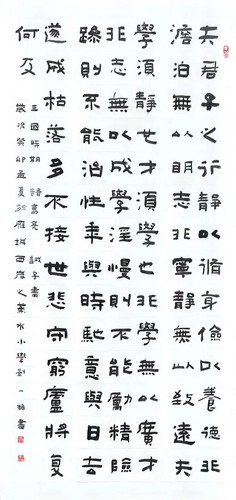 夫君子之行靜以脩身儉以養德非
澹泊無以明志非寧靜無以致遠夫
學須靜也才須學也非學無以廣才
非志無以成學淫慢則不能勵精險
躁則不能治性年與時馳意與日去
遂成枯落多不接世悲守窮廬將复
何及
三國時期 諸葛亮 誡子書
歲次癸卯孟夏於雁城西水小學劉一書